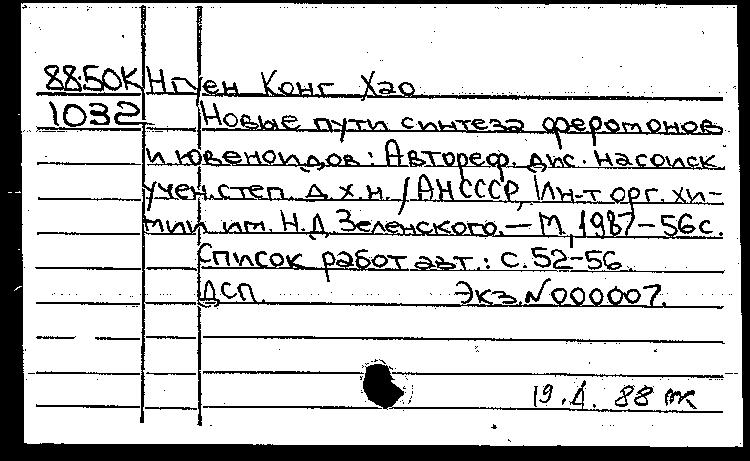 88.50К Нгуен Конг Хао
1032 Новые пути синтеза феромонов
и ювеноидов: Автореф. дис. на соиск
учен. степ. д.х.н. / АН СССР, Ин-т орг. хи-
мии им. Н.Д. Зеленского. — М, 1987 — 56с.
Список работ авт.: с. 52-56
ДСП. Экз. N 000007.
19. 88